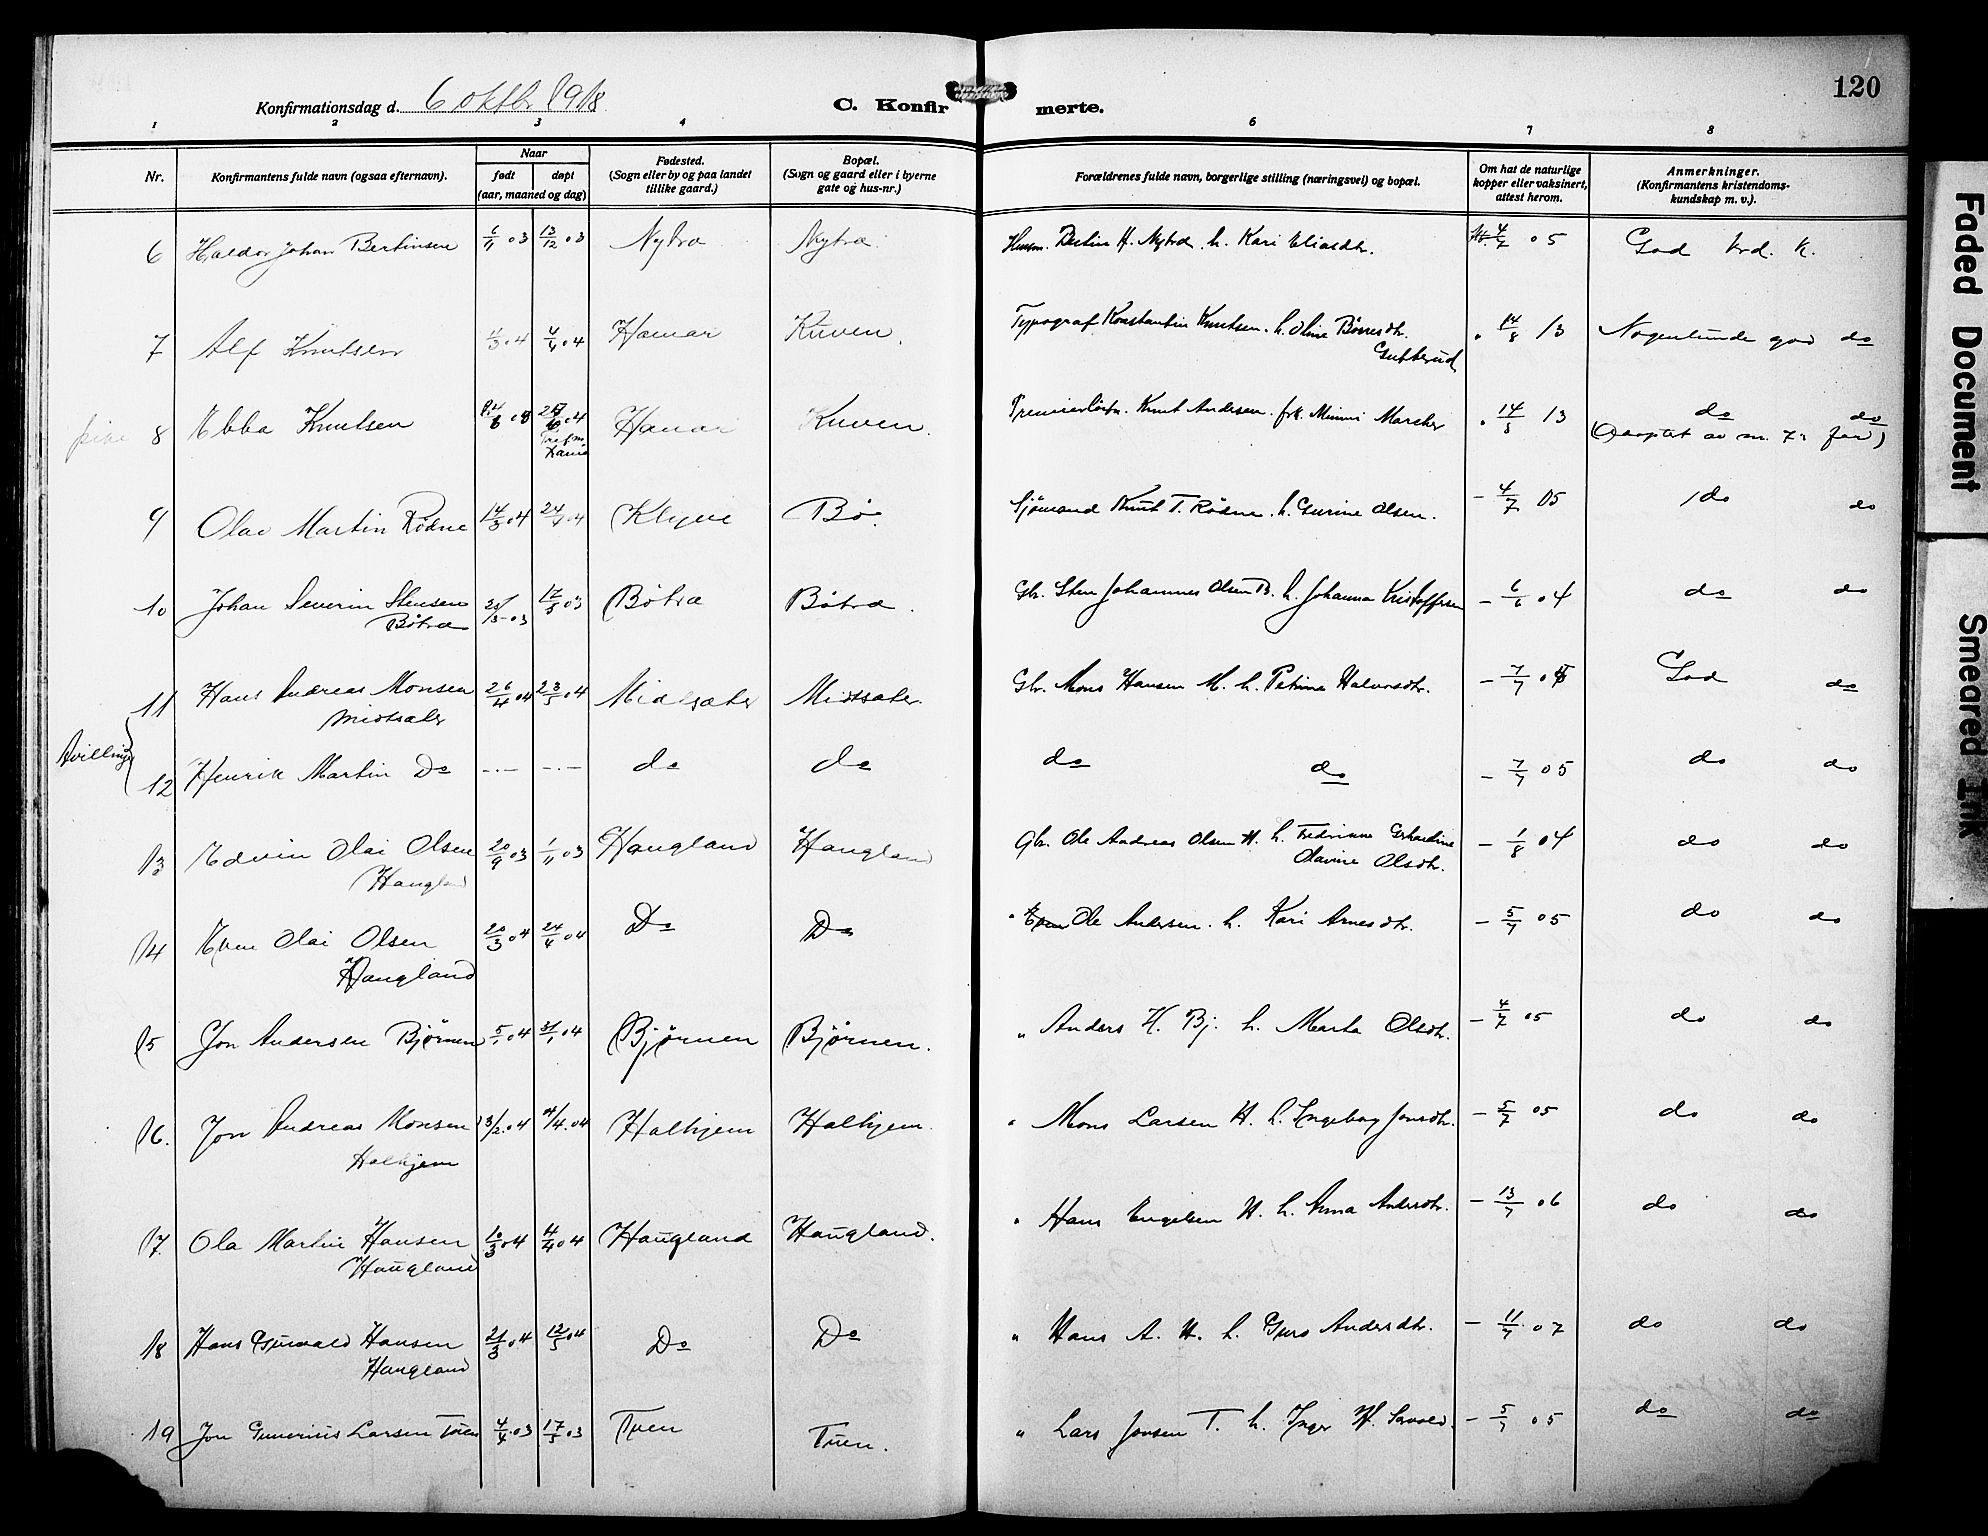 120
Konfirmationsdag d. 6 oktbr 1918
C. Konfirmerte.
1 2 3 4 6 7 8
Nr. Konfirmantens fulde navn (ogsaa efternavn). Naar født døpt (aar, maaned og dag) Fødested. (Sogn eller by og paa landet tillike gaard.) Bopæl. (Sogn og gaard eller i byerne gate og hus-nr.) Forældrenes fulde navn, borgerlige stilling (næringsvei) og bopæl. Om hat de naturlige kopper eller vaksinert, attest herom. Anmerkninger. (Konfirmantens kristendomskundskap m. v.).
6 Haldor Johan Bertinsen 6/11 03 13/12 03 Nytræ Nytræ Husm. Bertin H. Nytræ h. Kari Eliasdtr. 4/7 05 God krd. k.
7 Alf Knutsen 1/3 04 4/4 04 Hamar Kuven. Typograf Konstantin Knutsen. h. Oline Børresdtr. Gubberud " 14/8 13 Nogenlunde god do
pike 8 Ebba Knutsen Hamar Kuven. Premierløitn. Knut Andersen. frk. Mimmi Marcher " 14/8 13 do do
(Adoptert av nr. 7s far)
9 Olav Martin Rødne 14/3 04 24/4 04 Klyve Bø. Sjømand Knut T. Rødne. h. Gurine Olsen. - 4/7 05 do do
10 Johan Severin Stensen Bøtræ 25/3-03 17/5 03 Bøtræ Bøtræ. Gbr. Sten Johannes Olsen B. h. Johanna Kristoffersen - 6/6 04 do do
Tvillinger
11 Hans Andreas Monsen Midtsæter 26/4 04 23/5 04 Midtsæter Midtsæter. Gbr. Mons Hansen M. h. Petrine Halvorsdtr. - 7/7 05 God do
12 Henrik Martin Do -.- -.- do do do do - 7/7 05 do do
13 Edvin Olai Olsen Haugland 20/9 03 1/11 03 Haugland Haugland Gbr. Ole Andreas Olsen H. h. Fredrikke Gerhardine Olavine Olsdtr. - 1/8 04 do do
14 Even Olai Olsen Haugland 20/3 04 24/4 04 Do Do " Ole Andersen. h. Kari Arnesdtr. - 5/7 05 do do
15 Jon Andersen Bjørnen 5/1 04 31/1 04 Bjørnen Bjørnen. " Anders H. Bj. h. Marta Olsdtr. - 4/7 05 do do
16. Jon Andreas Monsen Halhjem 13/2.04 4/4.04 Halhjem Halhjem. " Mons Larsen H. h. Ingeborg Jonsdtr. - 5/7 05 do do
17 Ola Martin Hansen Haugland 10/3 04 4/4 04 Haugland Haugland. " Hans Engelsen H. h. Anna Andersdtr. - 13/7 06 do do
18 Hans Gunvald Hansen Haugland 21/3 04 12/5 04 Do Do " Hans A. H. h. Guro Andersdtr. - 11/7 07 do do
19 Jon Gunerius Larsen Tuen 4/4 03 17/5 03 Tuen Tuen. " Lars Jonsen T. h. Inger H. - 5/7 05 do do
Faded Document
Smeared Ink